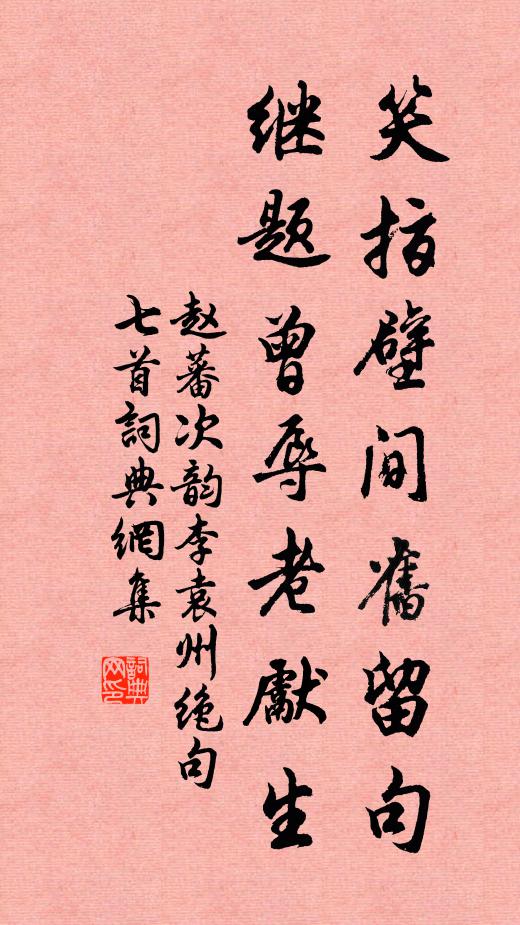 笑指壁间舊留句
继题曾辱老獻生
赵蕃次韵李袁州绝句
七首詞典網集
詞典网印